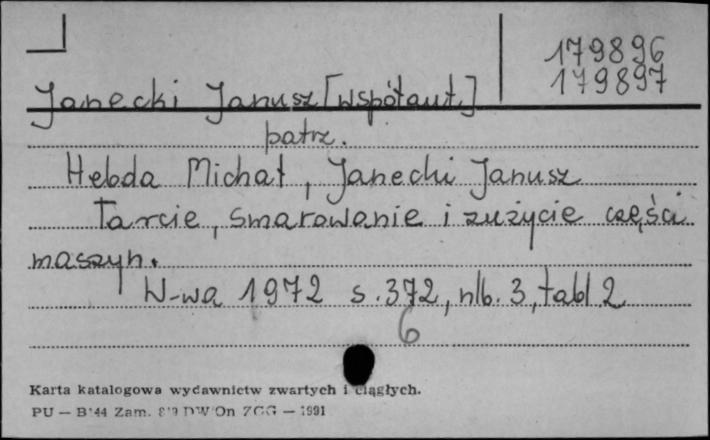 179896
179897
Janecki Janusz [współaut.]
patrz.
Hebda Michał, Janecki Janusz
Tarcie, smarowanie i zużycie części
maszyn.
W-wa 1972 s. 372, nlb. 3, tabl 2
6
Karta katalogowa wydawnictw zwartych i ciągłych.
PU — B'44 Zam. DW On ZGG — 1991